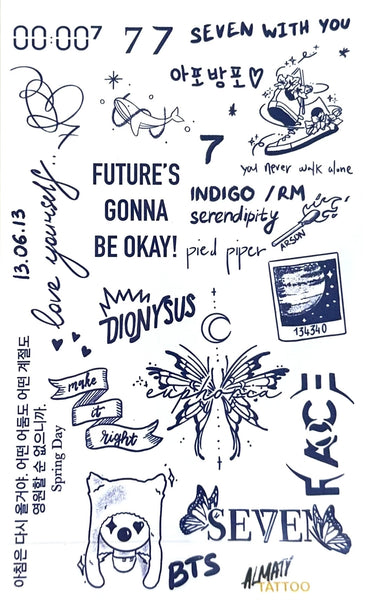 00:00⁷
77
SEVEN WITH YOU
아포방포♡
7
you never walk alone
FUTURE'S
GONNA
BE OKAY!
INDIGO / RM
serendipity
pied piper
ARSON
love yourself
13.06.13
DIONYSUS
134340
make
it
right
euphoria
FACE
아침은 다시 올거야. 어떤 어둠도 어떤 계절도
영원할 순 없으니까.
Spring Day
SEVEN
BTS
ALMATY
TATTOO